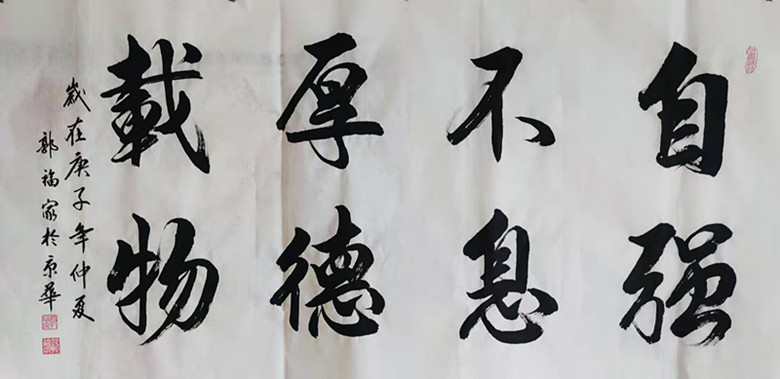 自强
不息
厚德
載物
歲在庚子年仲夏
郭福家於京華